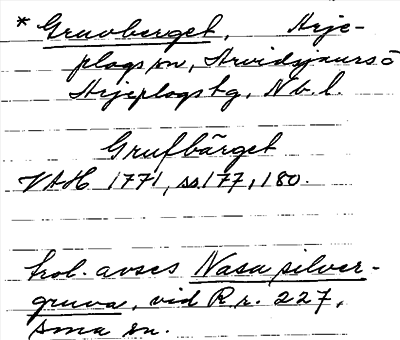 * Gruvberget, Arje-
plogs sn, Arvidsjaurs ö
Arjeplogs tg, Nb. l.
Grufbärget
VAH 1771, ss 177, 180.
trol. avses Nasa silver-
gruva, vid R. r. 227,
sma sn.